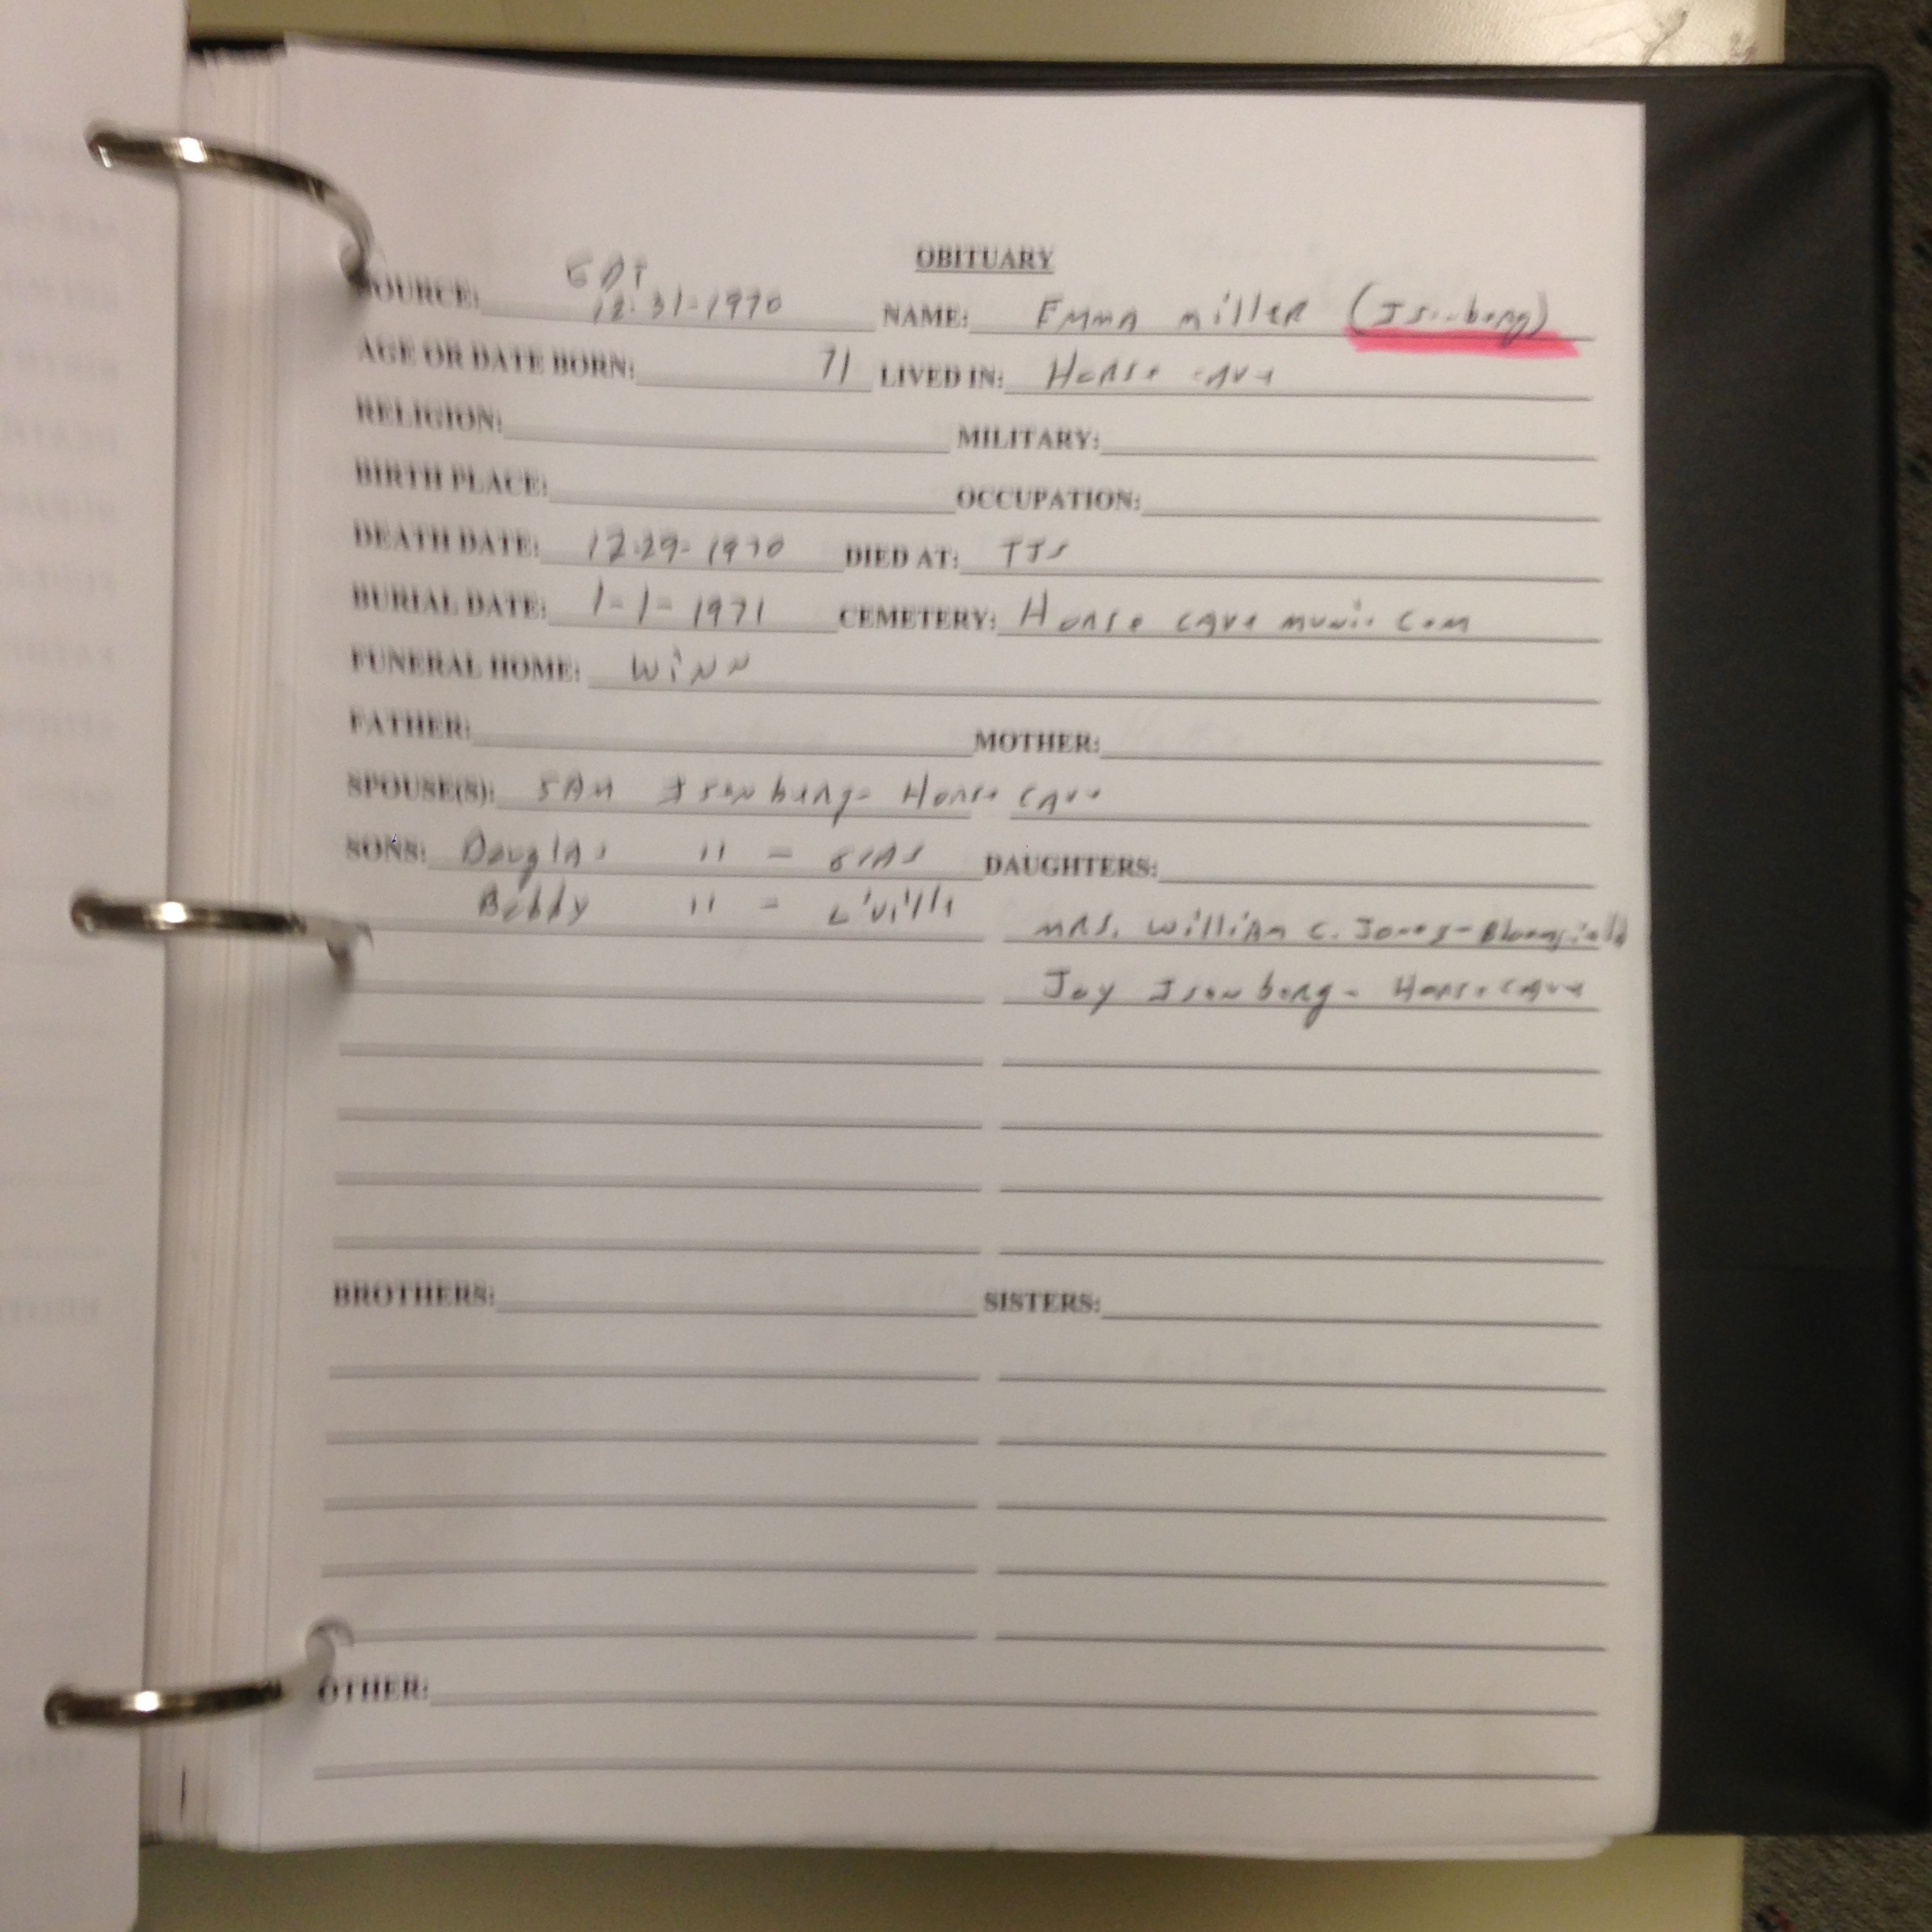 OBITUARY
GDT
SOURCE: 12-31-1970 NAME: Emma Miller (Isenberg)
AGE OR DATE BORN: 71 LIVED IN: Horse Cave
RELIGION: MILITARY:
BIRTH PLACE: OCCUPATION:
DEATH DATE: 12-29-1970 DIED AT: TJS
BURIAL DATE: 1-1-1971 CEMETERY: Horse Cave Munic Cem
FUNERAL HOME: Winn
FATHER: MOTHER:
SPOUSE(S): SAM Isenberg - Horse Cave
SONS: Douglas 11 - GLAS DAUGHTERS:
Bobby 11 - L'ville Mrs. William C. Jones - Bloomfield
Joy Isenberg - Horse Cave
BROTHERS: SISTERS:
OTHER: